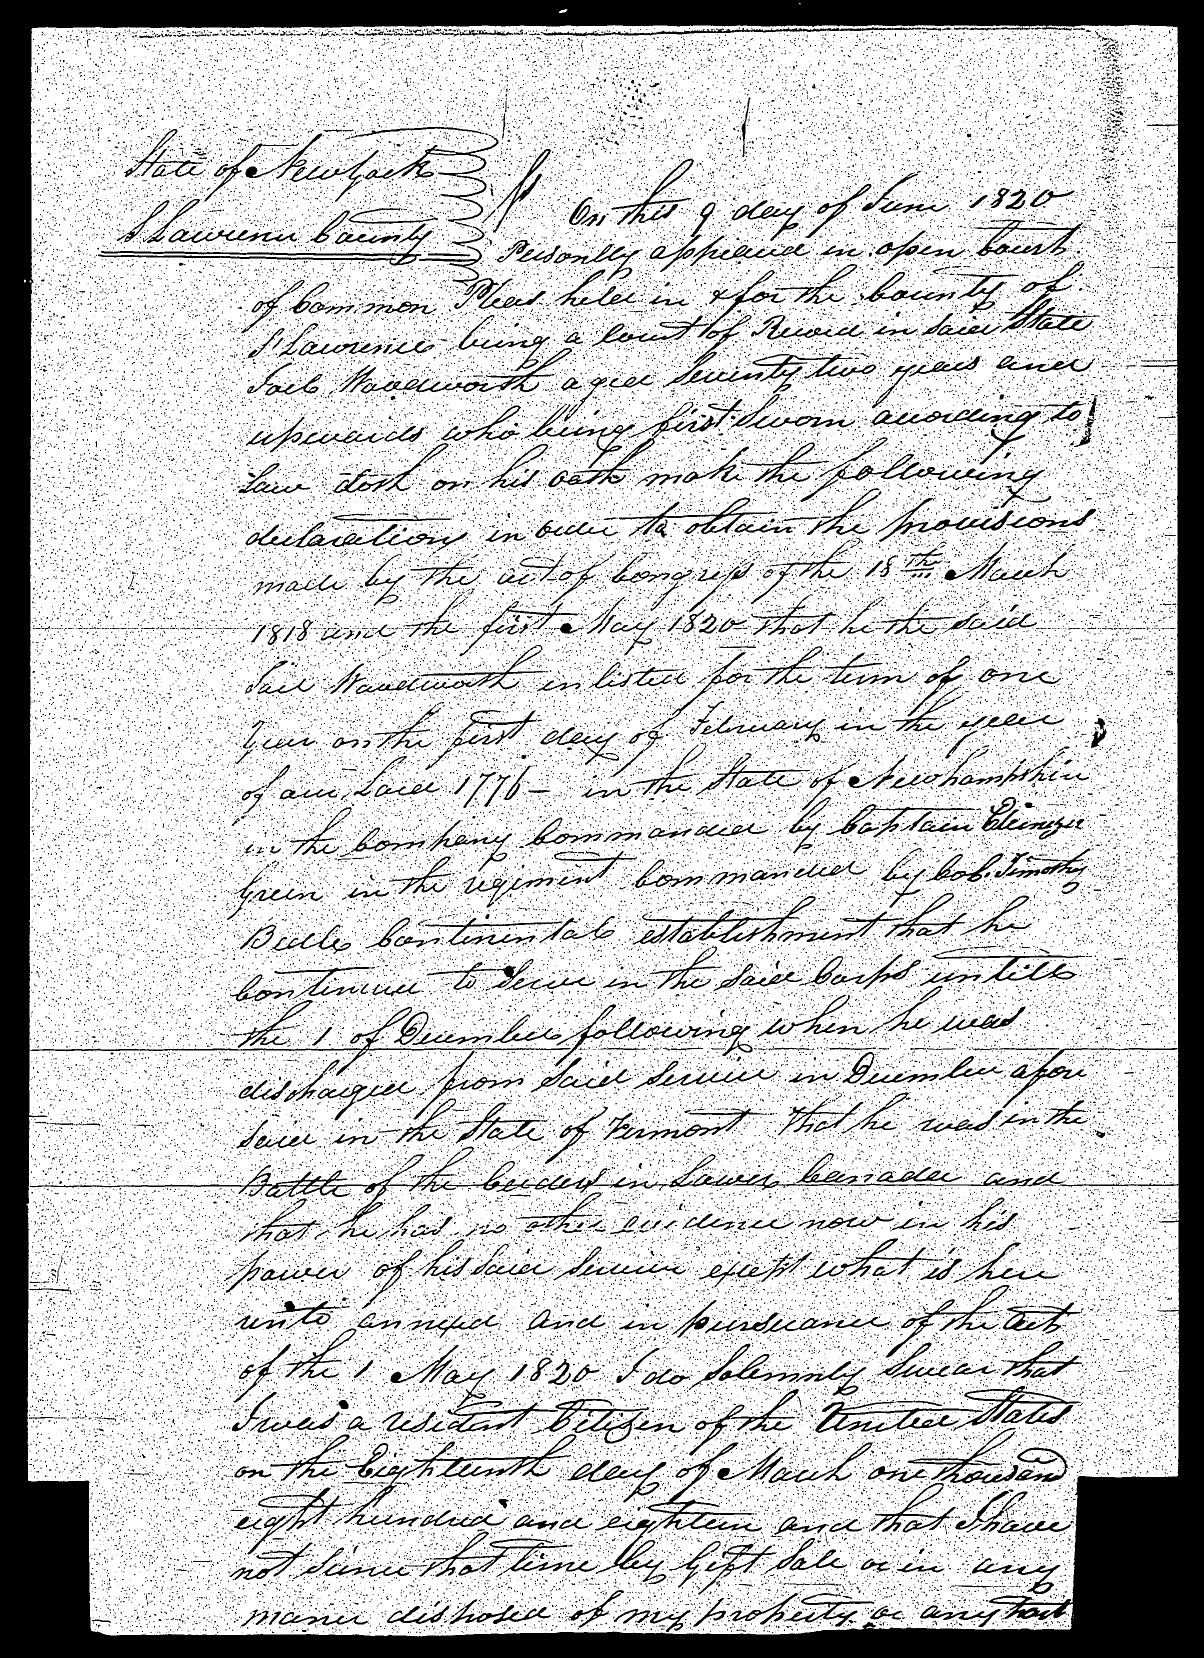 State of New York
S Lawrence County } ss On this 9 day of June 1820
Personlly appeared in open Court
of Common Pleas held in & for the County of
S Lawrence being a Court of Record in said State
Joel Woodworth aged Seventy two years and
upwards who being first Sworn according to
Law doth on his oath make the following
declaration in order to obtain the provisions
made by the act of Congress of the 18th March
1818 and the first May 1820 that he the said
Joel Woodworth enlisted for the term of one
Year on the first day of February in the year
of our Lord 1776 - in the State of Newhampshire
in the Company Commanded by Captain Ebenezer
Green in the regiment Commanded by Col. Timothy
Bedle Continental establishment that he
Continued to Serve in the said Corps untill
the 1 of December following when he was
discharged from said service in December afore
said in the State of Vermont That he was in the
Battle of the Ceeders in Lower Canada and
that he has no other evidence now in his
power of his said service except what is here
unto annexed and in pursuance of the act
of the 1 May 1820 I do Solemnly Swear that
I was a resident Citizen of the United States
on the Eighteenth day of March one thousand
eight hundred and eighteen and that I have
not since that time by Gift Sale or in any
maner disposed of my property or any part